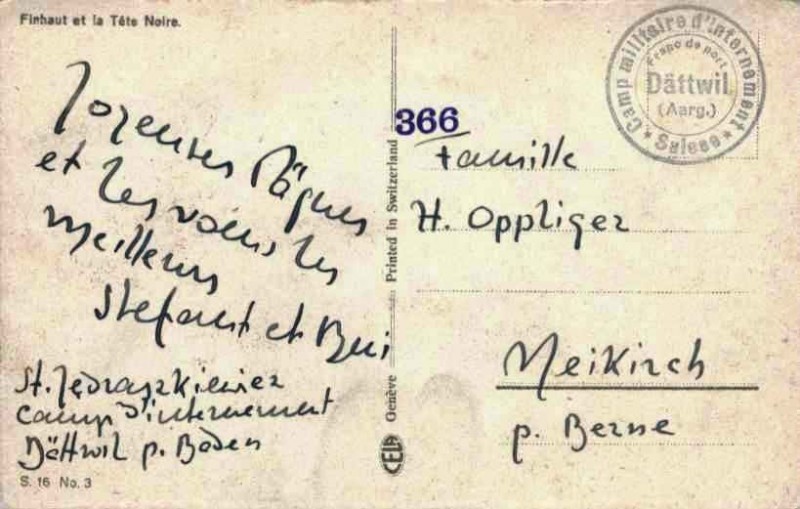 Finhaut et la Tête Noire.
Joyeuses Pâques
et les voeux les
meilleurs
Stefan et
St. Jędraszkiewicz
camp d'internement
Dättwil p. Baden
S. 16 No. 3
Genève Printed in Switzerland
366
Camp militaire d'internement
Franc de port
Dättwil
(Aarg.)
Suisse
Famille
H. Oppliger
Meikirch
p. Berne